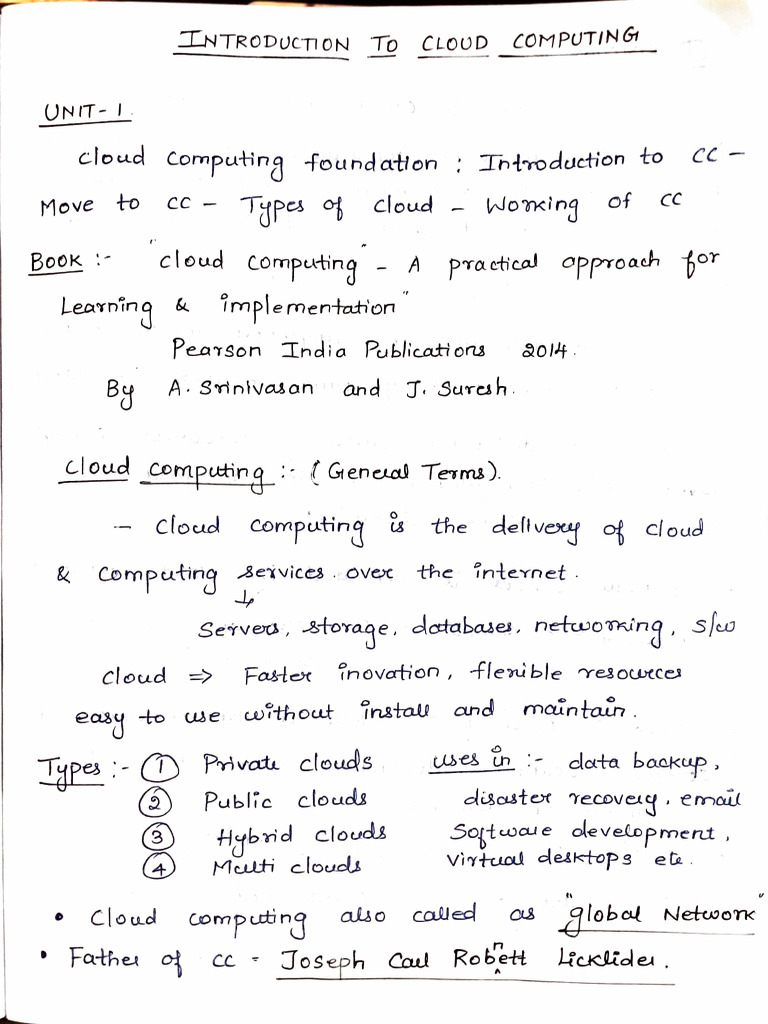 INTRODUCTION TO CLOUD COMPUTING
UNIT-1.
Cloud Computing foundation : Introduction to CC -
Move to CC - Types of cloud - Working of CC
BOOK :- "cloud computing" - A practical approach for
Learning & implementation"
Pearson India Publications 2014.
By A. Srinivasan and J. Suresh.
Cloud Computing :- (General Terms).
- Cloud Computing is the delivery of cloud
& Computing services over the internet.
↳
Servers, storage, databases, networking, s/w
Cloud => Faster inovation, flexible resources
easy to use without install and maintain.
Types :- ① Private clouds uses in :- data backup,
② Public clouds disaster recovery, email
③ Hybrid clouds Software development,
④ Multi clouds Virtual desktops etc.
• Cloud computing also called as "global Network"
• Father of CC - Joseph Carl Robnett Licklider.